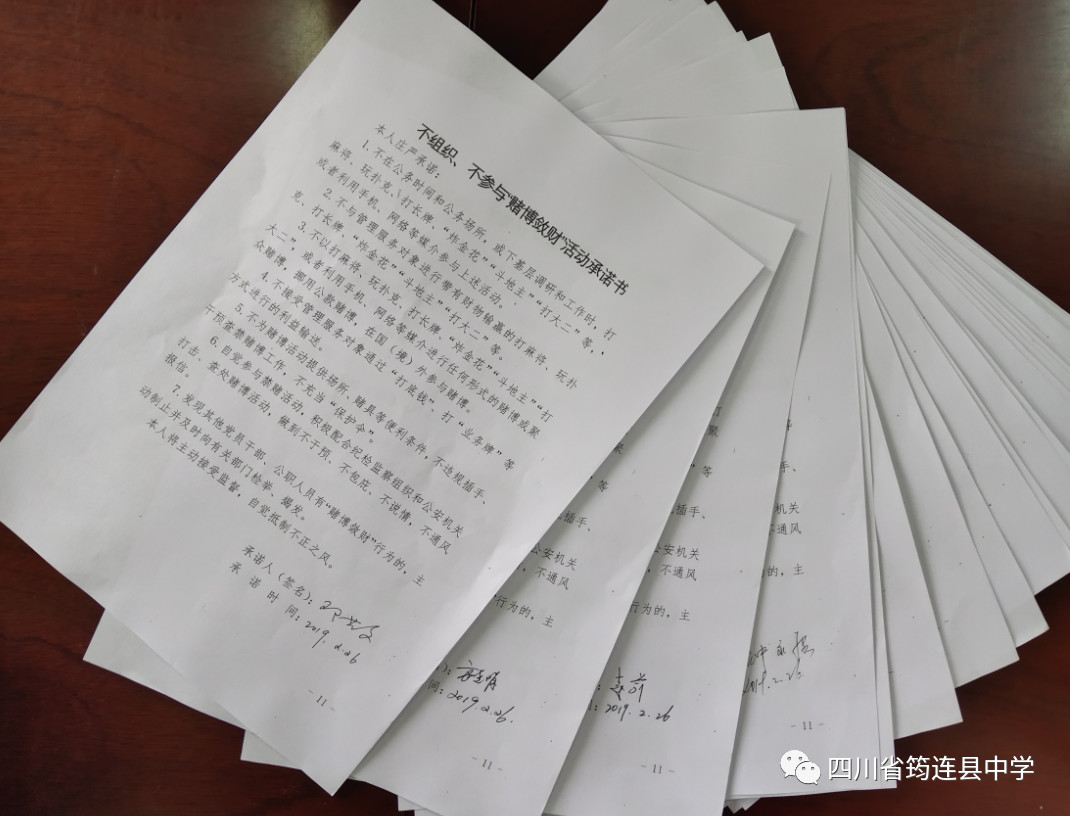 不组织、不参与“赌博敛财”活动承诺书
本人庄严承诺：
1.不在公务时间和公务场所，或下基层调研和工作时，打
麻将、玩扑克、打长牌、“炸金花”“斗地主”“打大二”等，
或者利用手机、网络等媒介参与上述活动。
2.不与管理服务对象进行带有财物输赢的打麻将、玩扑
克、打长牌、“炸金花”“斗地主”“打大二”等。
3.不以打麻将、玩扑克、打长牌、“炸金花”“斗地主”“打
大二”，或者利用手机、网络等媒介进行任何形式的赌博或聚
众赌博，挪用公款赌博，在国（境）外参与赌博。
4.不接受管理服务对象通过“打底钱、打“业务牌”等
方式进行的利益输送。
5.不为赌博活动提供场所、赌具等便利条件，不违规插手、
干预查禁赌博工作，不充当“保护伞”。
6.自觉参与禁赌活动，积极配合纪检监察组织和公安机关
打击、查处赌博活动，做到不干预、不包庇、不说情，不通风
报信。
7.发现其他党员干部、公职人员有“赌博敛财”行为的，主
动制止并及时向有关部门检举、揭发。
本人将主动接受监督，自觉抵制不正之风。
承诺人（签名）：
承 诺 时 间：2019.2.26
- 11 -
等
插手、
公安机关
，不通风
行为的，主
）：
间：2019.2.26.
- 11 -
聚
”等
插手、
公安机关
，不通风
行为的，主
：
：2019.2.26
- 11 -
打
聚
等
手、
机关
不通风
的，主
2.26
- 11 -
四川省筠连县中学